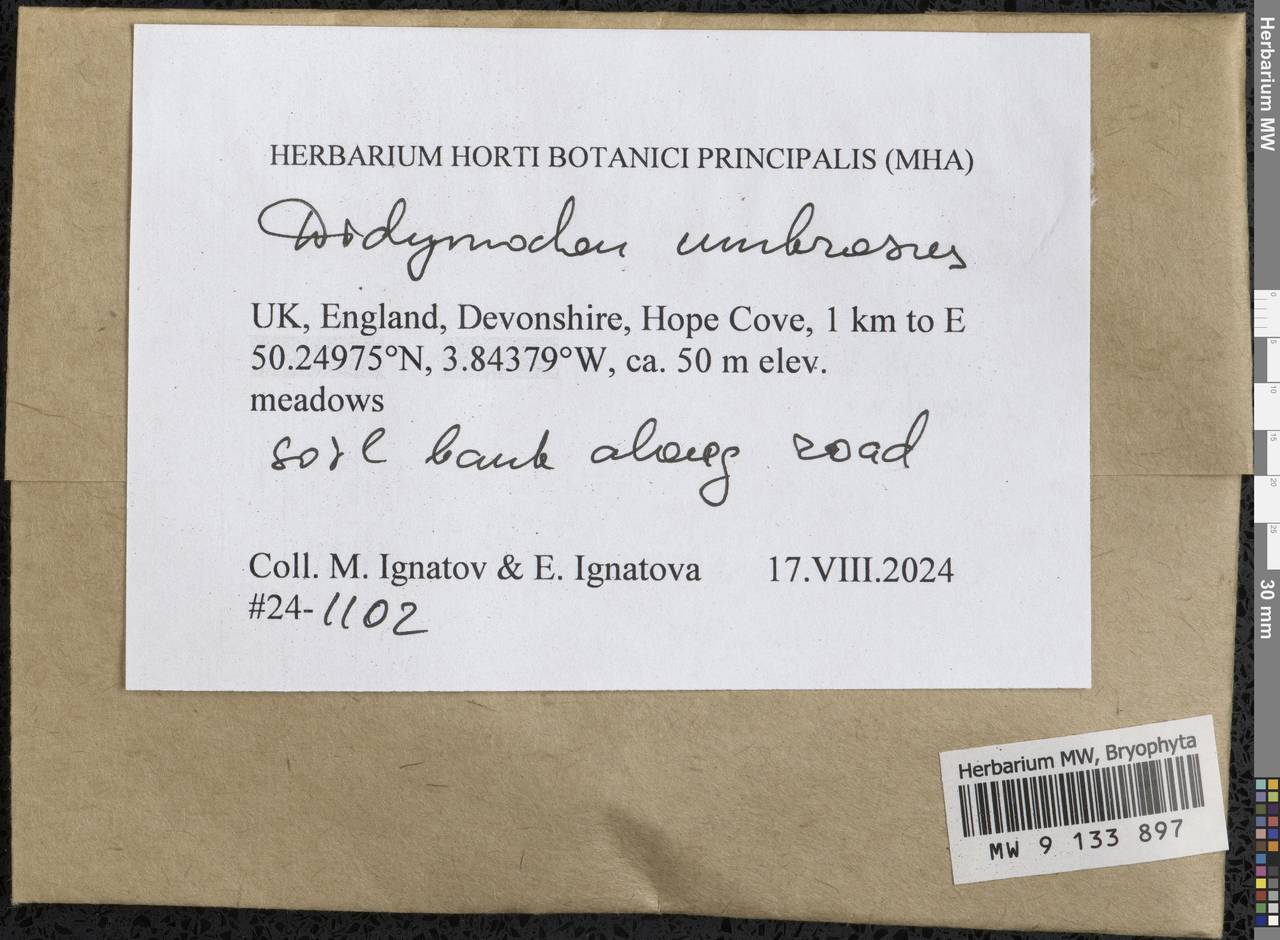 HERBARIUM HORTI BOTANICI PRINCIPALIS (MHA)
Didymodon umbrosus
UK, England, Devonshire, Hope Cove, 1 km to E
50.24975°N, 3.84379°W, ca. 50 m elev.
meadows
soil bank along road
Coll. M. Ignatov & E. Ignatova 17.VIII.2024
#24-1102
Herbarium MW, Bryophyta
MW 9 133 897
Herbarium MW
0
5
10
15
20
25
30 mm